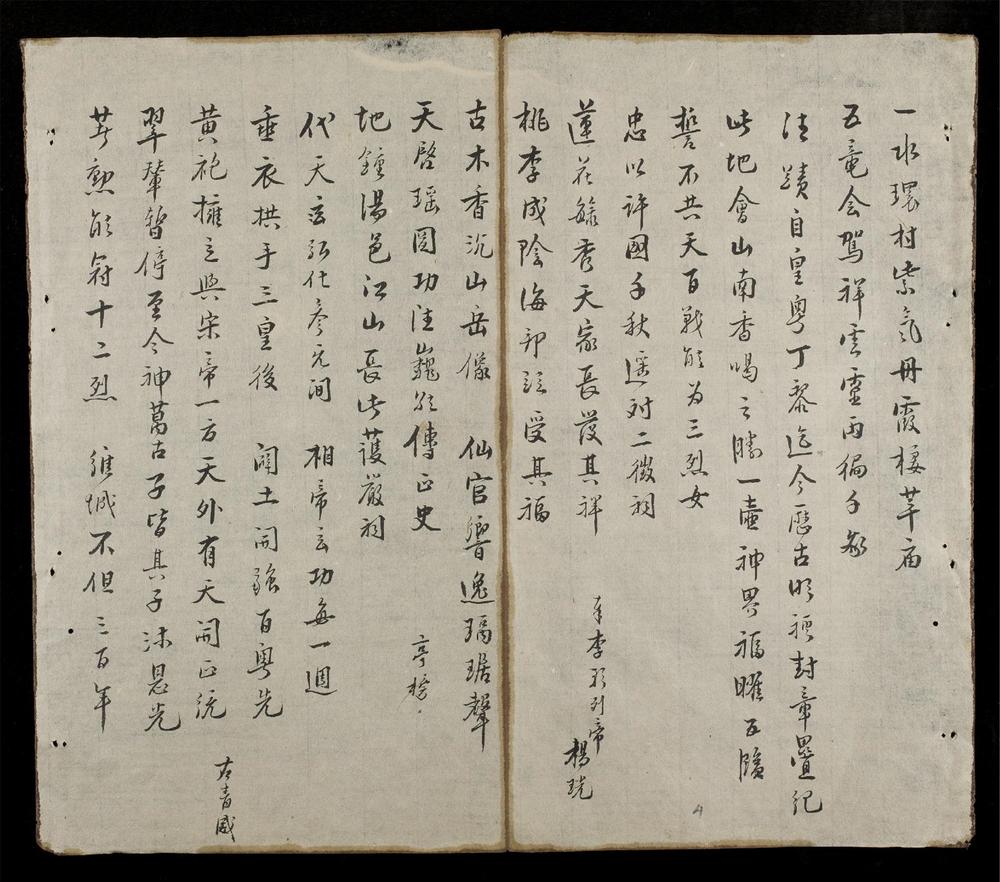 一水環村紫氣丹霞棲羋庙
五竜会駕祥雲靈雨徧千
往蹟自皇粵丁黎迄今歴古貤褒封章疊紀
此地會山南香喝之勝一壺神界福曜互臨
誓不共天百戰能为三烈女
忠以许國千秋遥对二徵祠
蓮花毓秀天家長發其祥
桃李成陰海邦疑受其福
奉李 列帝
楊
古木香沉山岳像 仙官響逸瑀琚聲
天啓瑶圖功德巍然傳正史
地鍾湯邑江山長此護嚴祠
亭榜
代天 化参元间 相帝玄功每一週
垂衣拱手三皇後 闢土開疆百粵先
黄袍擁立興宋帝一方天外有天開正統
古青威
翠輦暫停至今神萬古子皆其子沐恩光
英勲能符十二烈 維城不但三百年
4